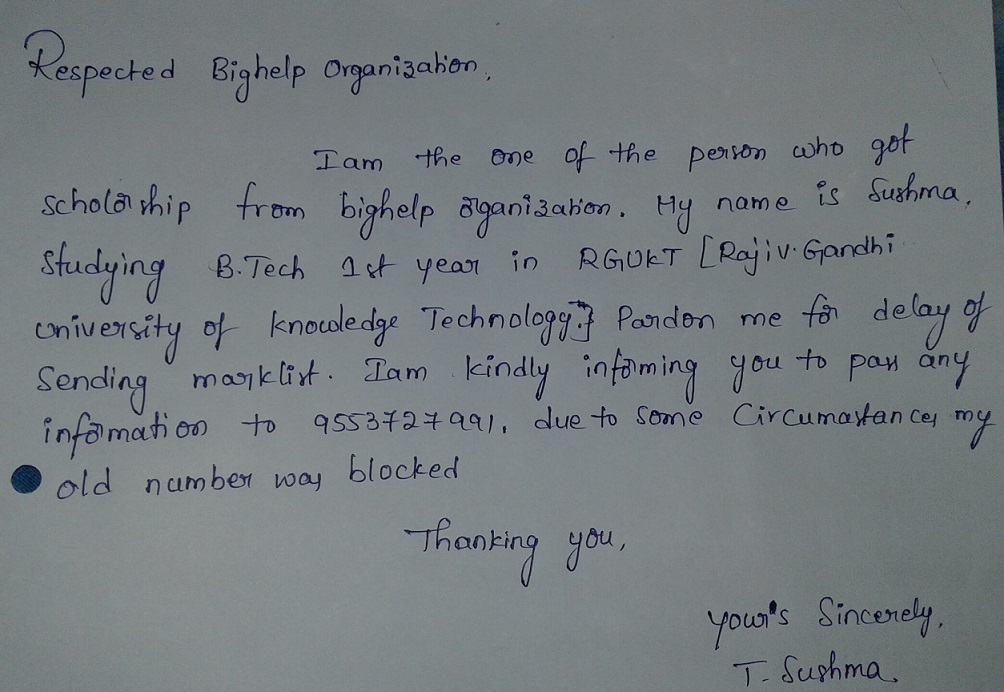 Respected Bighelp Organization,
I am the one of the person who got
scholarship from bighelp organization. My name is Sushma,
Studying B.Tech 1st year in RGUKT [Rajiv Gandhi
university of knowledge Technology.] Pardon me for delay of
Sending marklist. I am kindly informing you to pass any
information to 9553727991, due to some Circumastances my
old number was blocked
Thanking you,
your's Sincerely,
T. Sushma.